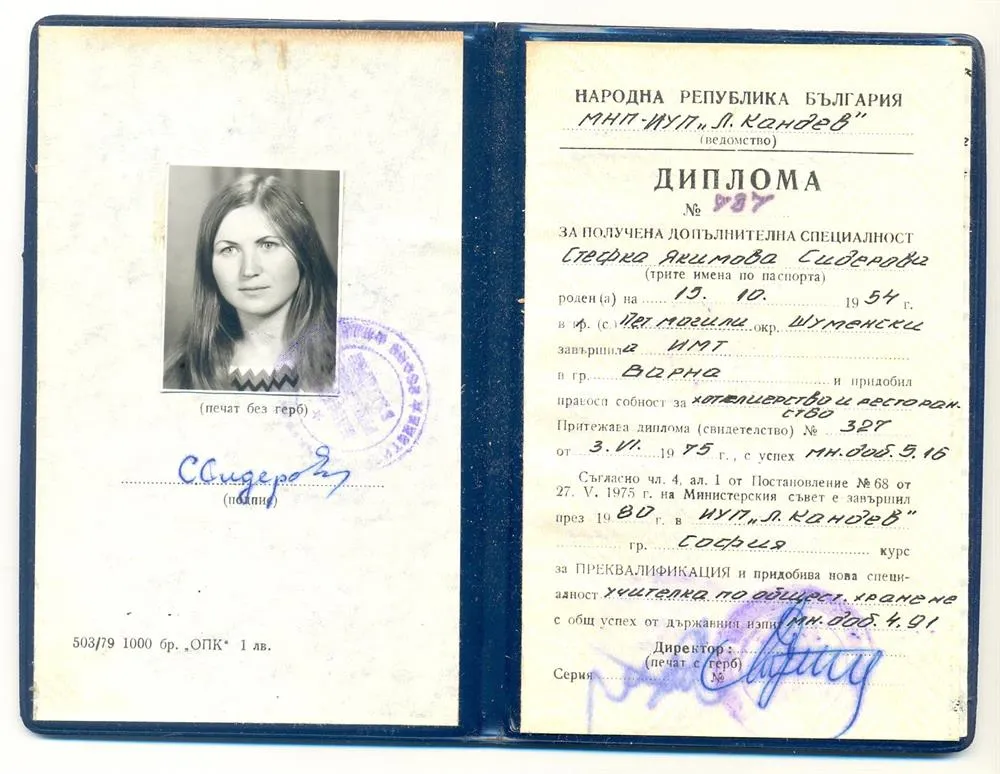 (печат без герб)
ССидерова
(подпис)
503/79 1000 бр. „ОПК“ 1 лв.
НАРОДНА РЕПУБЛИКА БЪЛГАРИЯ
МНП-ИУП „Л. Кандев“
(ведомство)
ДИПЛОМА
№
ЗА ПОЛУЧЕНА ДОПЪЛНИТЕЛНА СПЕЦИАЛНОСТ
Стефка Якимова Сидерова
(трите имена по паспорта)
роден(а) на 15. 10. 1954 г.
в гр. (с.) Пет могили окр. Шуменски
завършила ИМТ
в гр. Варна и придобил
правоспособност за хотелиерство и ресторан-
ство
Притежава диплома (свидетелство) № 327
от 3. VI. 1975 г., с успех мн. доб. 5.16
Съгласно чл. 4, ал. 1 от Постановление № 68 от
27. V. 1975 г. на Министерския съвет е завършил
през 1980 г. в ИУП „Л. Кандев“
гр. София курс
за ПРЕКВАЛИФИКАЦИЯ и придобива нова специ-
алност учителка по общест. хранене
с общ успех от държавния изпит мн. доб. 4.91
Директор:
(печат с герб)
Серия №